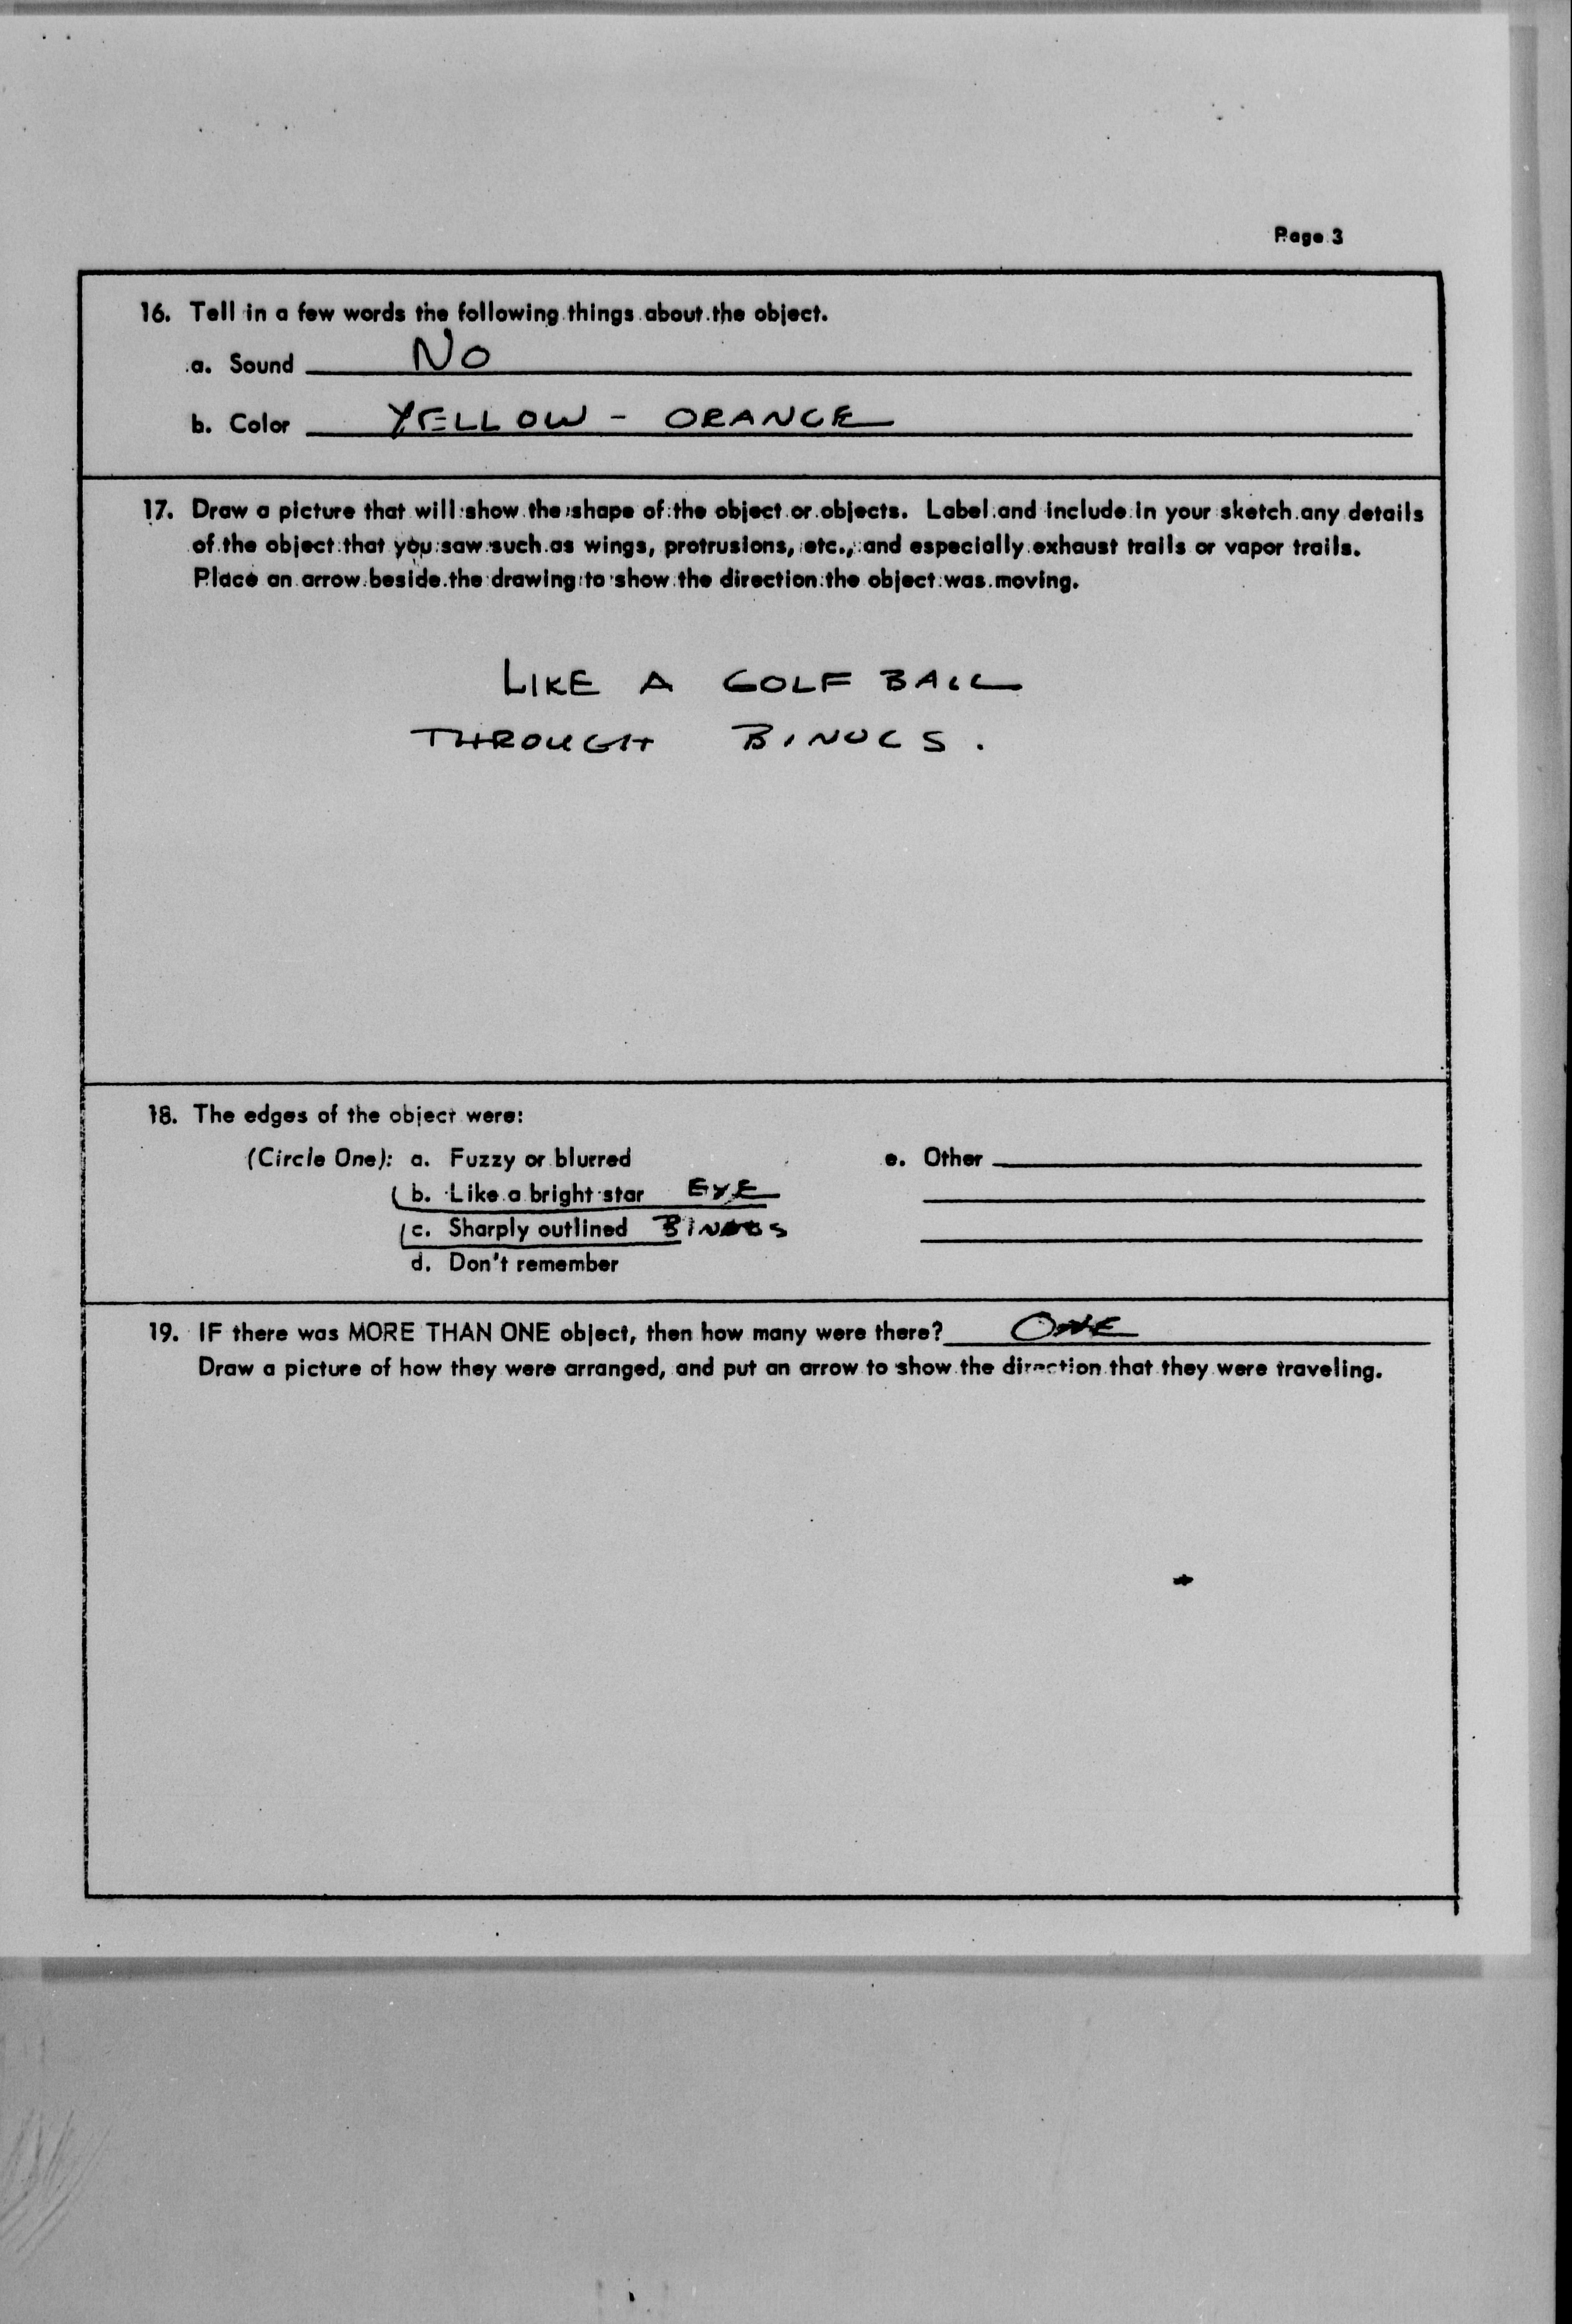 Page 3
16. Tell in a few words the following things about the object.
a. Sound No
b. Color YELLOW - ORANGE
17. Draw a picture that will show the shape of the object or objects. Label and include in your sketch any details
of the object that you saw such as wings, protrusions, etc., and especially exhaust trails or vapor trails.
Place an arrow beside the drawing to show the direction the object was moving.
LIKE A GOLF BALL
THROUGH BINOCS.
18. The edges of the object were:
(Circle One): a. Fuzzy or blurred e. Other
b. Like a bright star EYE
c. Sharply outlined BINOCS
d. Don't remember
19. IF there was MORE THAN ONE object, then how many were there? ONE
Draw a picture of how they were arranged, and put an arrow to show the direction that they were traveling.